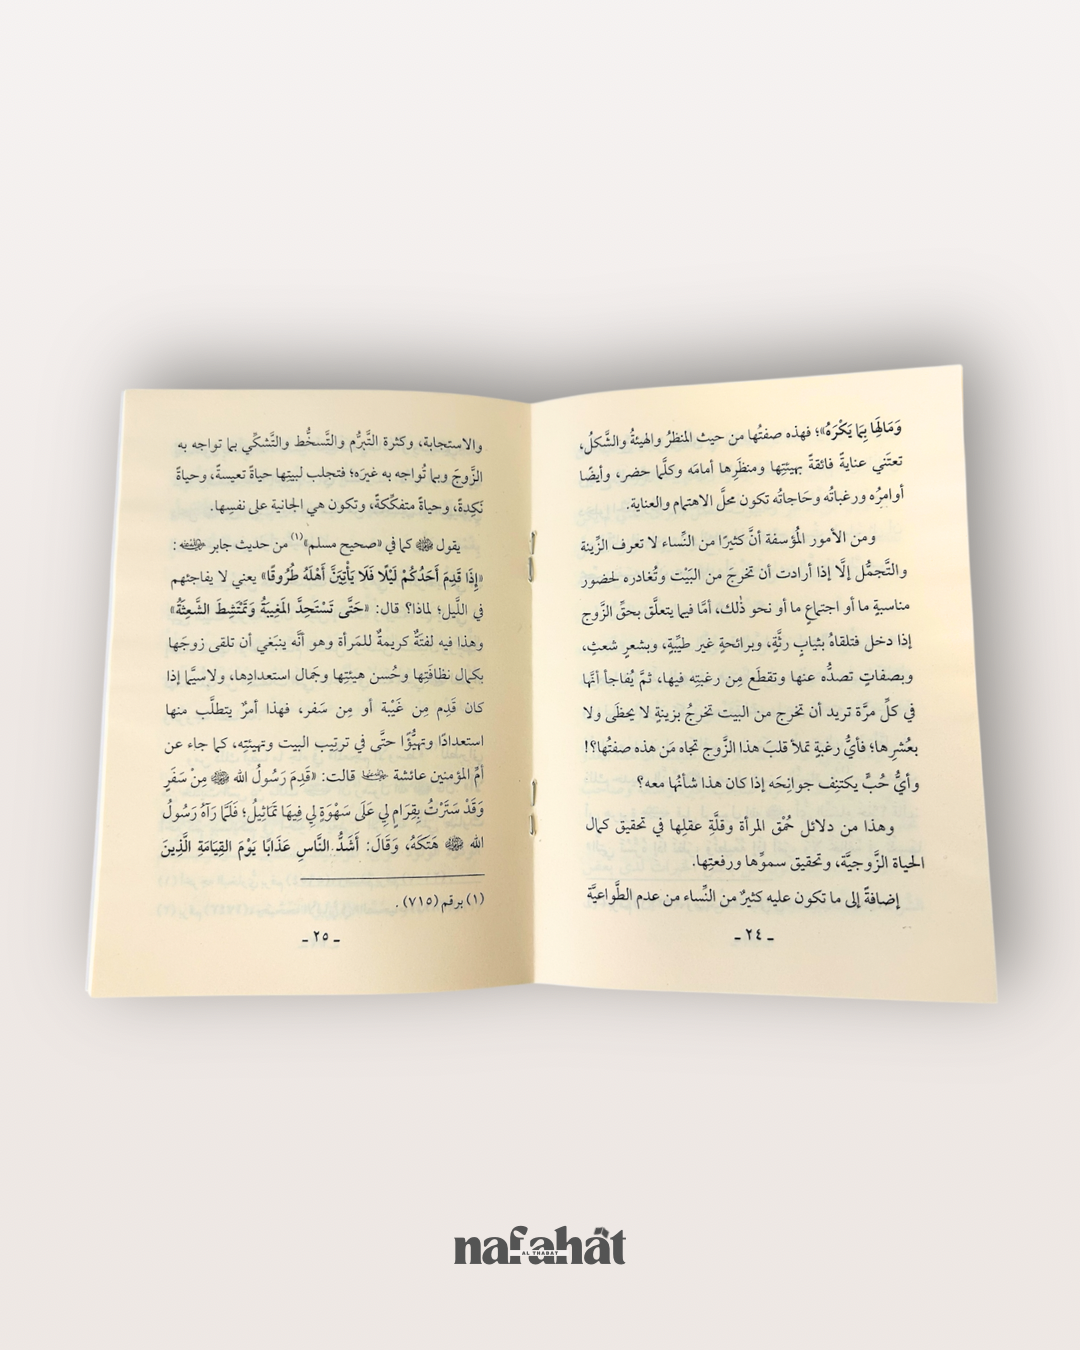 وَمَالِهَا بِمَا يَكْرَهُ»؛ فهذه صفتُها من حيث المنظرُ والهيئةُ والشَّكلُ،
تعتَني عنايةً فائقةً بهيئتِها ومنظَرِها أمامَه وكلَّما حضر، وأيضًا
أوامرُه ورغباتُه وحَاجاتُه تكون محلَّ الاهتمام والعناية.
ومن الأمور المُؤسفة أنَّ كثيرًا من النِّساء لا تعرف الزِّينة
والتَّجمُّل إلَّا إذا أرادت أن تخرجَ من البَيْت وتُغادره لحضور
مناسبةٍ ما أو اجتماعٍ ما أو نحو ذٰلك، أمَّا فيما يتعلَّق بحقِّ الزَّوج
إذا دخل فتلقاهُ بثيابٍ رثَّةٍ، وبرائحةٍ غير طيِّبةٍ، وبشعرٍ شعثٍ،
وبصفاتٍ تصدُّه عنها وتقطَع مِن رغبتِه فيها، ثمَّ يُفاجأ أنَّها
في كلِّ مرَّة تريد أن تخرج من البيت تخرجُ بزينةٍ لا يحظَى ولا
بعُشرِها؛ فأيُّ رغبةٍ تملأ قلبَ هذا الزَّوج تجاه مَن هذه صفتُها؟!
وأيُّ حُبٍّ يكتنِف جوانِحَه إذا كان هذا شأنُها معه؟
وهذا من دلائل حُمْق المرأة وقلَّةِ عقلِها في تحقيق كمال
الحياة الزَّوجيَّة، وتحقيق سموِّها ورفعتِها.
إضافةً إلى ما تكون عليه كثيرٌ من النِّساء من عدم الطَّواعيَّة
ـ ٢٤ ـ
والاستجابة، وكثرة التَّبرُّم والتَّسخُّط والتَّشكِّي بما تواجه به
الزَّوجَ وبما تُواجه به غيرَه؛ فتجلب لبيتِها حياةً تعيسةً، وحياةً
نَكِدةً، وحياةً متفكِّكةً، وتكون هي الجانية على نفسِها.
يقول ﷺ كما في «صحيح مسلم»(١) من حديث جابر رضي الله عنه:
«إِذَا قَدِمَ أَحَدُكُمْ لَيْلًا فَلَا يَأْتِيَنَّ أَهْلَهُ طُرُوقًا» يعني لا يفاجئهم
في اللَّيل؛ لماذا؟ قال: «حَتَّى تَسْتَحِدَّ المَغِيبَةُ وَتَمْتَشِطَ الشَّعِثَةُ»
وهذا فيه لفتَةٌ كريمةٌ للمَرأة وهو أنَّه ينبَغي أن تلقى زوجَها
بكمال نظافَتِها وحُسن هيئتِها وجَمال استعدادِها، ولاسيَّما إذا
كان قَدِم مِن غَيْبة أو مِن سَفر، فهذا أمرٌ يتطلَّب منها
استعدادًا وتهيُّؤًا حتَّى في ترتِيب البيت وتهيئتِه، كما جاء عن
أمِّ المؤمنين عائشة رضي الله عنها قالت: «قَدِمَ رَسُولُ الله ﷺ مِنْ سَفَرٍ
وَقَدْ سَتَرْتُ بِقِرَامٍ لِي عَلَى سَهْوَةٍ لِي فِيهَا تَمَاثِيلُ؛ فَلَمَّا رَآهُ رَسُولُ
الله ﷺ هَتَكَهُ، وَقَالَ: أَشَدُّ النَّاسِ عَذَابًا يَوْمَ القِيَامَةِ الَّذِينَ
(١) برقم (٧١٥).
ـ ٢٥ ـ
nafahât
AL THABAT